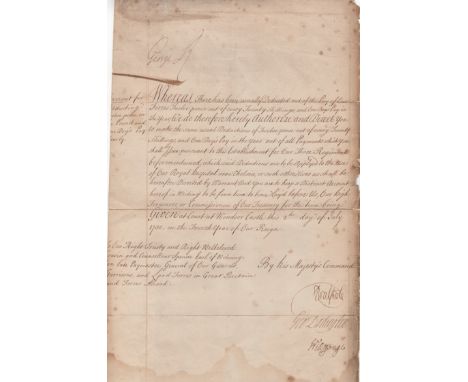 George R
Whereas There has been usually Deducted out of the Pay of Our
Forces Twelve pence out of every Twenty Shillings and One Days Pay in
the Year, We do therefore hereby Authorize and Direct You
to make the same usual Deductions of Twelve pence out of every Twenty
Shillings and One Days Pay in the Year out of all Payments which You
shall pursuant to the Establishment for Our Three Regiments
which said Deductions are to be applyed to the Use
of Our Royal Hospital near Chelsea, or such other Uses as shall be
hereafter Directed by Warrant And You are to keep a Distinct Account
hereof in Writing to be from time to time laid before Us Our High
Treasurer or Commissioners of Our Treasury for the time being
Given at Court at Windsor Castle this 2d day of July
17 in the Fourth Year of Our Reign
Warrant for
Deducting
Twelve pence in
Pound and
One Days Pay
To Our Right Trusty and Right Welbeloved
Cousin and Councellour Spencer Earl of Wilming-
ton Late Paymaster General of Our Guards
Garrisons and Land Forces in Great Britain
and Forces Abroad
By his Majestys Command
R Walpole